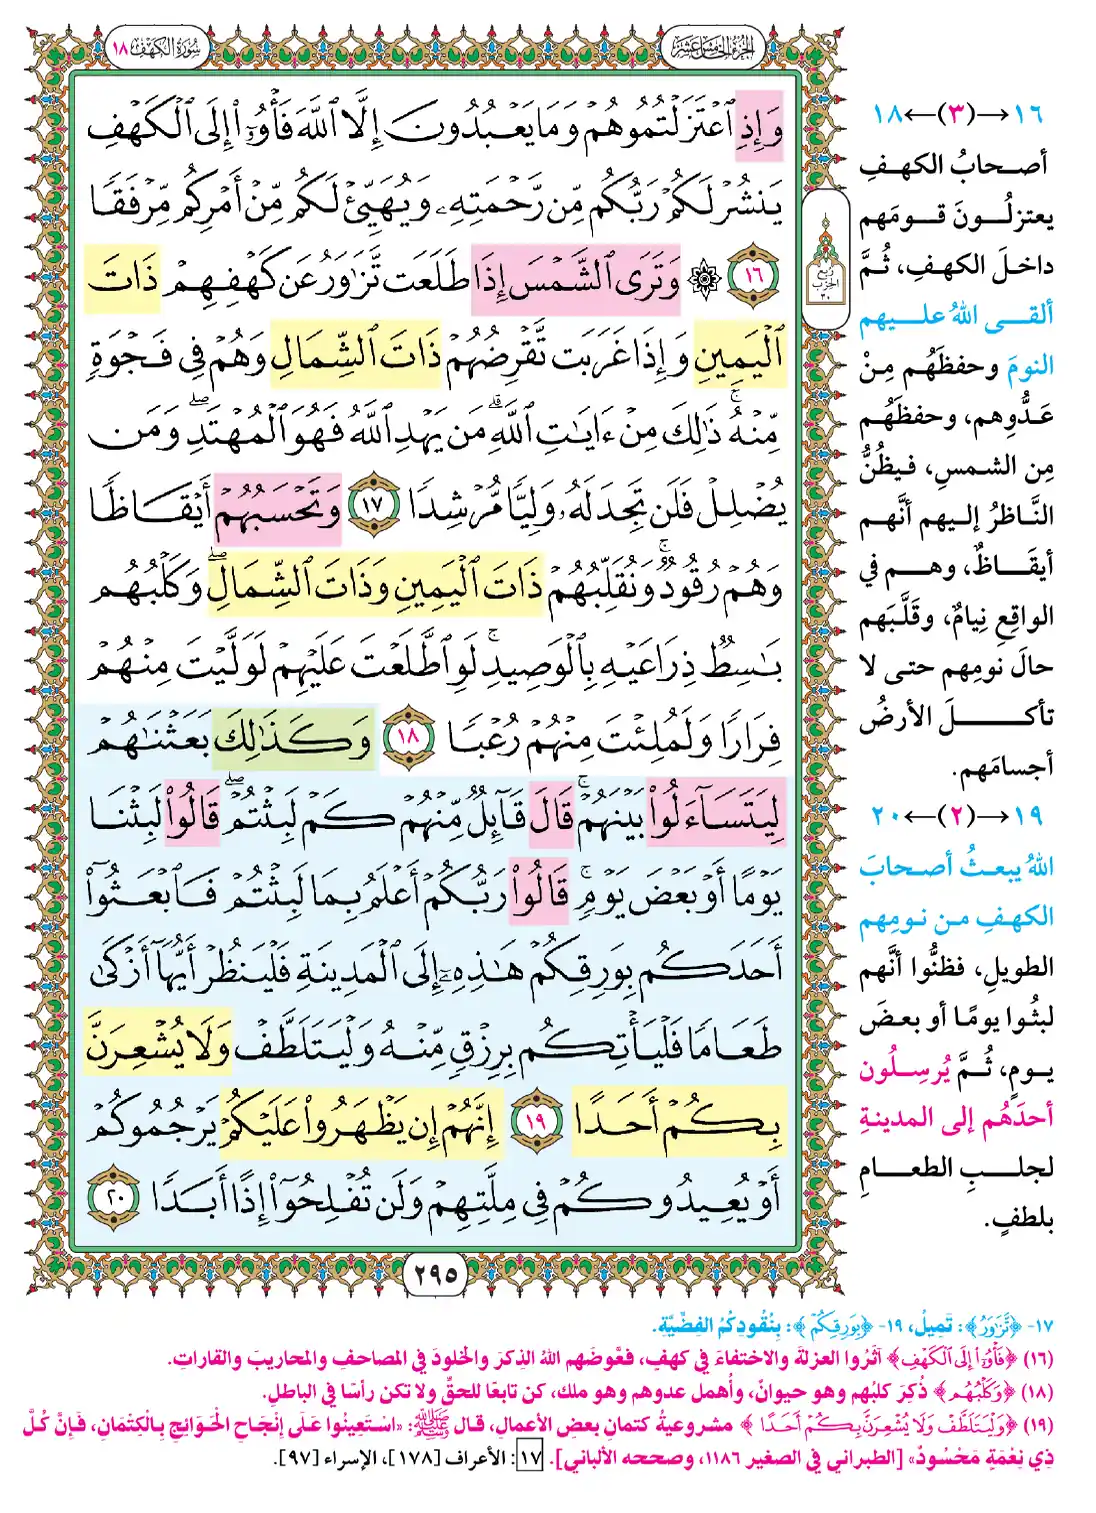 الجزء الخامس عشر
سورة الكهف ١٨
وَإِذِ ٱعْتَزَلْتُمُوهُمْ وَمَا يَعْبُدُونَ إِلَّا ٱللَّهَ فَأْوُۥٓا۟ إِلَى ٱلْكَهْفِ
يَنشُرْ لَكُمْ رَبُّكُم مِّن رَّحْمَتِهِۦ وَيُهَيِّئْ لَكُم مِّنْ أَمْرِكُم مِّرْفَقًا
١٦ ۞ وَتَرَى ٱلشَّمْسَ إِذَا طَلَعَت تَّزَٰوَرُ عَن كَهْفِهِمْ ذَاتَ
ٱلْيَمِينِ وَإِذَا غَرَبَت تَّقْرِضُهُمْ ذَاتَ ٱلشِّمَالِ وَهُمْ فِى فَجْوَةٍ
مِّنْهُ ۚ ذَٰلِكَ مِنْ ءَايَٰتِ ٱللَّهِ ۗ مَن يَهْدِ ٱللَّهُ فَهُوَ ٱلْمُهْتَدِ ۖ وَمَن
يُضْلِلْ فَلَن تَجِدَ لَهُۥ وَلِيًّا مُّرْشِدًا ١٧ وَتَحْسَبُهُمْ أَيْقَاظًا
وَهُمْ رُقُودٌ ۚ وَنُقَلِّبُهُمْ ذَاتَ ٱلْيَمِينِ وَذَاتَ ٱلشِّمَالِ ۖ وَكَلْبُهُم
بَٰسِطٌ ذِرَاعَيْهِ بِٱلْوَصِيدِ ۚ لَوِ ٱطَّلَعْتَ عَلَيْهِمْ لَوَلَّيْتَ مِنْهُمْ
فِرَارًا وَلَمُلِئْتَ مِنْهُمْ رُعْبًا ١٨ وَكَذَٰلِكَ بَعَثْنَٰهُمْ
لِيَتَسَآءَلُوا۟ بَيْنَهُمْ ۚ قَالَ قَآئِلٌ مِّنْهُمْ كَمْ لَبِثْتُمْ ۖ قَالُوا۟ لَبِثْنَا
يَوْمًا أَوْ بَعْضَ يَوْمٍ ۚ قَالُوا۟ رَبُّكُمْ أَعْلَمُ بِمَا لَبِثْتُمْ فَٱبْعَثُوٓا۟
أَحَدَكُم بِوَرِقِكُمْ هَٰذِهِۦٓ إِلَى ٱلْمَدِينَةِ فَلْيَنظُرْ أَيُّهَآ أَزْكَىٰ
طَعَامًا فَلْيَأْتِكُم بِرِزْقٍ مِّنْهُ وَلْيَتَلَطَّفْ وَلَا يُشْعِرَنَّ
بِكُمْ أَحَدًا ١٩ إِنَّهُمْ إِن يَظْهَرُوا۟ عَلَيْكُمْ يَرْجُمُوكُمْ
أَوْ يُعِيدُوكُمْ فِى مِلَّتِهِمْ وَلَن تُفْلِحُوٓا۟ إِذًا أَبَدًا ٢٠
٢٩٥
ربع
الحزب
٣٠
١٦→(٣)←١٨
أصحابُ الكهفِ
يعتزلُونَ قومَهم
داخلَ الكهفِ، ثُمَّ
ألقى اللهُ عليهم
النومَ وحفظَهُم مِنْ
عَدُّوِهم، وحفظَهُم
مِن الشمسِ، فيظُنُّ
النَّاظرُ إليهم أنَّهم
أيقَاظٌ، وهم في
الواقعِ نِيامٌ، وقَلَّبَهم
حالَ نومِهم حتى لا
تأكلَ الأرضُ
أجسامَهم.
١٩→(٢)←٢٠
اللهُ يبعثُ أصحابَ
الكهفِ من نومِهم
الطويلِ، فظنُّوا أنَّهم
لبثُوا يومًا أو بعضَ
يومٍ، ثُمَّ يُرسِلُون
أحدَهُم إلى المدينةِ
لجلبِ الطعامِ
بلطفٍ.
١٧- ﴿تَّزَٰوَرُ﴾: تَمِيلُ، ١٩- ﴿بِوَرِقِكُمْ﴾: بِنُقُودِكُمُ الفِضِّيَّةِ.
(١٦) ﴿فَأْوُۥٓا۟ إِلَى ٱلْكَهْفِ﴾ آثَرُوا العزلةَ والاختفاءَ في كهفٍ، فعَّوضَهم اللهُ الذِكرَ والخلودَ في المصاحفِ والمحاريبِ والقاراتِ.
(١٨) ﴿وَكَلْبُهُم﴾ ذُكِرَ كلبُهم وهو حيوانٌ، وأُهمل عدوهم وهو ملك، كن تابعًا للحقِّ ولا تكن رأسًا في الباطلِ.
(١٩) ﴿وَلْيَتَلَطَّفْ وَلَا يُشْعِرَنَّ بِكُمْ أَحَدًا﴾ مشروعيةُ كتمانِ بعضِ الأعمالِ، قال ﷺ: «اسْتَعِينُوا عَلَى إِنْجَاحِ الْحَوَائِجِ بِالْكِتْمَانِ، فَإِنَّ كُلَّ
ذِي نِعْمَةٍ مَحْسُودٌ» [الطبراني في الصغير ١١٨٦، وصححه الألباني]. ١٧: الأعراف [١٧٨]، الإسراء [٩٧].